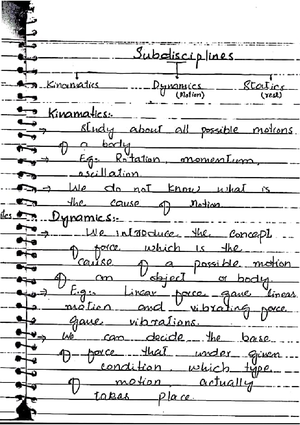 Subdisciplines
Kinamatics Dynamics Statics
(Motion) (rest)
Kinamatics:-
→ Study about all possible motions
of a body
→ Eg:- Rotation, momentum,
oscillation
→ We do not know what is
the cause of Motion.
Dynamics:-
→ We introduce the concept
of force which is the
cause of a possible motion
of an object or body
→ E.g:- Linear force gave linear
motion and vibrating force
gave vibrations.
→ We can decide the base
of force that under given
condition which type
of motion actually
takes place